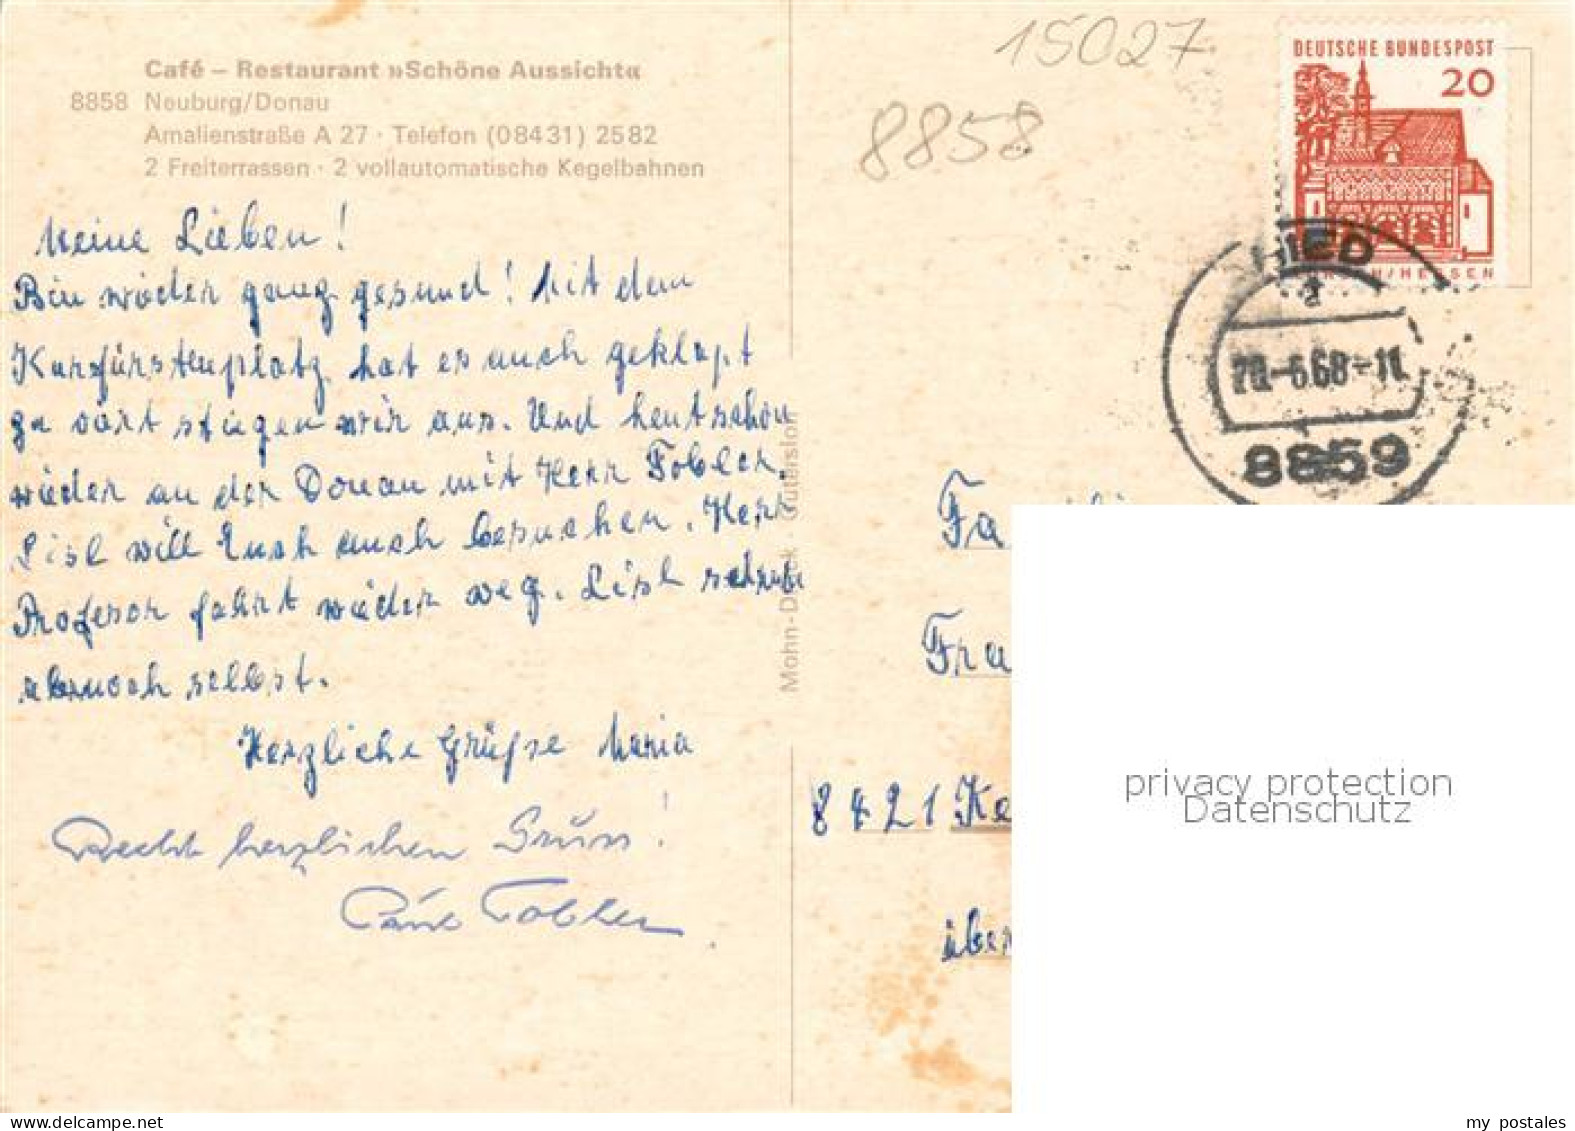 Café – Restaurant »Schöne Aussicht«
8858 Neuburg/Donau
Amalienstraße A 27 · Telefon (08431) 2582
2 Freiterrassen · 2 vollautomatische Kegelbahnen
Meine Lieben!
Bin wieder ganz gesund! Mit dem
Kurfürstenplatz hat es auch geklapt
ja dort stiegen wir aus. Und heut schon
wieder an der Donau mit Herr Tobler.
Lisl will Euch auch besuchen. Herr
Profesor fährt wieder weg. Lisl schreibt
aber noch selbst.
Herzliche Grüße Maria
Recht herzlichen Gruss!
Paul Tobler
Mohn-Druck · Gütersloh
15027
8858
DEUTSCHE BUNDESPOST
20
LORSCH/HESSEN
HIED
a
20.-6.68-11
8859
Fa
Frau
8421 Ke
über
privacy protection
Datenschutz
my postales